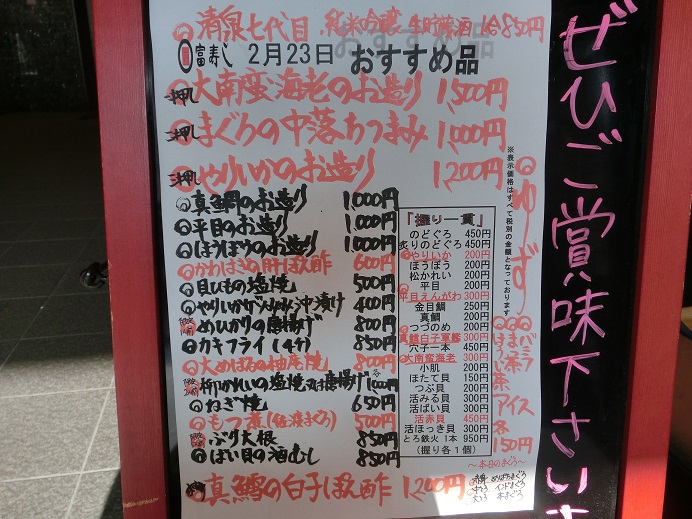 清泉七代目 純米吟醸 生貯蔵酒 1合850円
富寿し 2月23日 おすすめ品
一押し 大南蛮海老のお造り 1,500円
二押し まぐろの中落ちつまみ 1,000円
三押し やりいかのお造り 1,200円
真鯛のお造り 1,000円
平目のお造り 1,000円
ほうぼうのお造り 1,000円
かわはぎの肝ぽん酢 600円
貝ひもの塩焼 500円
やりいか 沖漬け 400円
めひかりの唐揚げ 800円
カキフライ(4ケ) 850円
大めばるの柚庵焼 800円
柳かれいの塩焼又は唐揚げ
ねぎ焼 650円
もつ煮(佐渡まぐろ) 500円
ぶり大根 850円
ばい貝の酒むし 850円
真鱈の白子ぽん酢 1,200円
※表示価格はすべて税別の金額となっております
「握り一貫」
のどぐろ 450円
炙りのどぐろ 450円
やりいか 200円
ほうぼう 200円
松かれい 200円
平目 200円
平目えんがわ 300円
金目鯛 250円
真鯛 200円
つづのめ 200円
真鱈白子軍艦 300円
穴子一本 450円
大南蛮海老 350円
小肌 200円
ほたて貝 150円
つぶ貝 200円
活みる貝 300円
活ばい貝 300円
活赤貝 450円
活ほっき貝 300円
とろ鉄火 1本 950円
(握り各1個)
バニラ
抹茶
ほうじ茶
アイス
各150円
~本日のまぐろ~
赤身 めばちまぐろ
中とろ インドまぐろ
大とろ 本まぐろ
ぜひご賞味下さいま